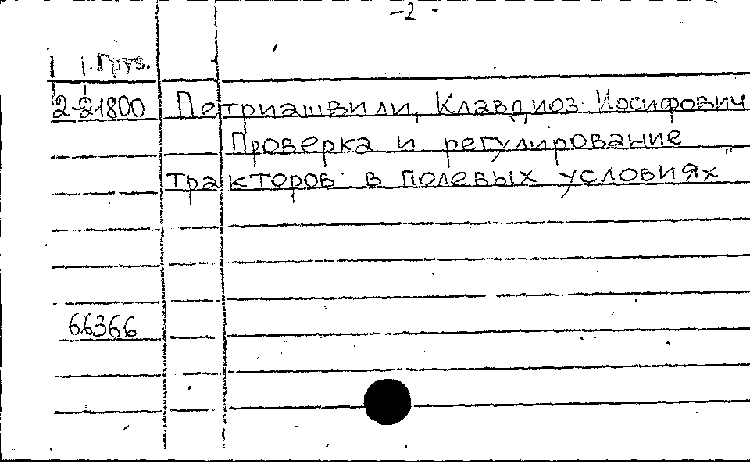 -2-
2-21800 Петриашвили, Клавдиоз Иосифович
Проверка и регулирование
тракторов в полевых условиях
66366